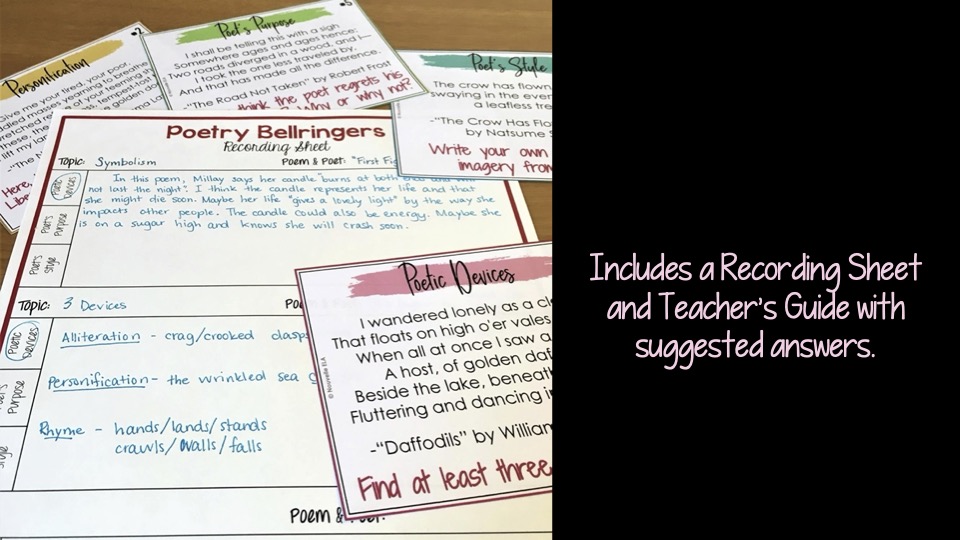 Personification
#2
Give me your tired, your poor,
masses yearning to breathe
of your teeming
these, the tempest-tost
lift my lamp
golden
Here,
Poet's Purpose
#5
I shall be telling this with a sigh
Somewhere ages and ages hence:
Two roads diverged in a wood, and I—
I took the one less traveled by,
And that has made all the difference.
-"The Road Not Taken" by Robert Frost
think the poet regrets his
Why or why not?
Poet's Style
The crow has flown
swaying in the even
a leafless tre
-"The Crow Has Flo
by Natsume S
Write your own
imagery from
Poetry Bellringers
Recording Sheet
Topic: Symbolism
Poem & Poet: "First Fi
Poetic Devices
Poet's Purpose
Poet's Style
In this poem, Millay says her candle "burns at both ends and will
not last the night". I think the candle represents her life and that
she might die soon. Maybe her life "gives a lovely light" by the way she
impacts other people. The candle could also be energy. Maybe she
is on a sugar high and knows she will crash soon.
Topic: 3 Devices
Poetic Devices
Purpose
Alliteration - crag/crooked clasps
Personification - the wrinkled sea
Rhyme - hands/lands/stands
crawls/walls/falls
Poem & Poet:
Poetic Devices
I wandered lonely as a cl
That floats on high o'er vales
When all at once I saw a
A host, of golden daf
Beside the lake, beneath
Fluttering and dancing in
-"Daffodils" by William
Find at least three
© Nouvelle ELA
Includes a Recording Sheet
and Teacher's Guide with
suggested answers.